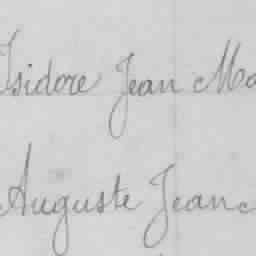 Isidore Jean Ma
Auguste Jean